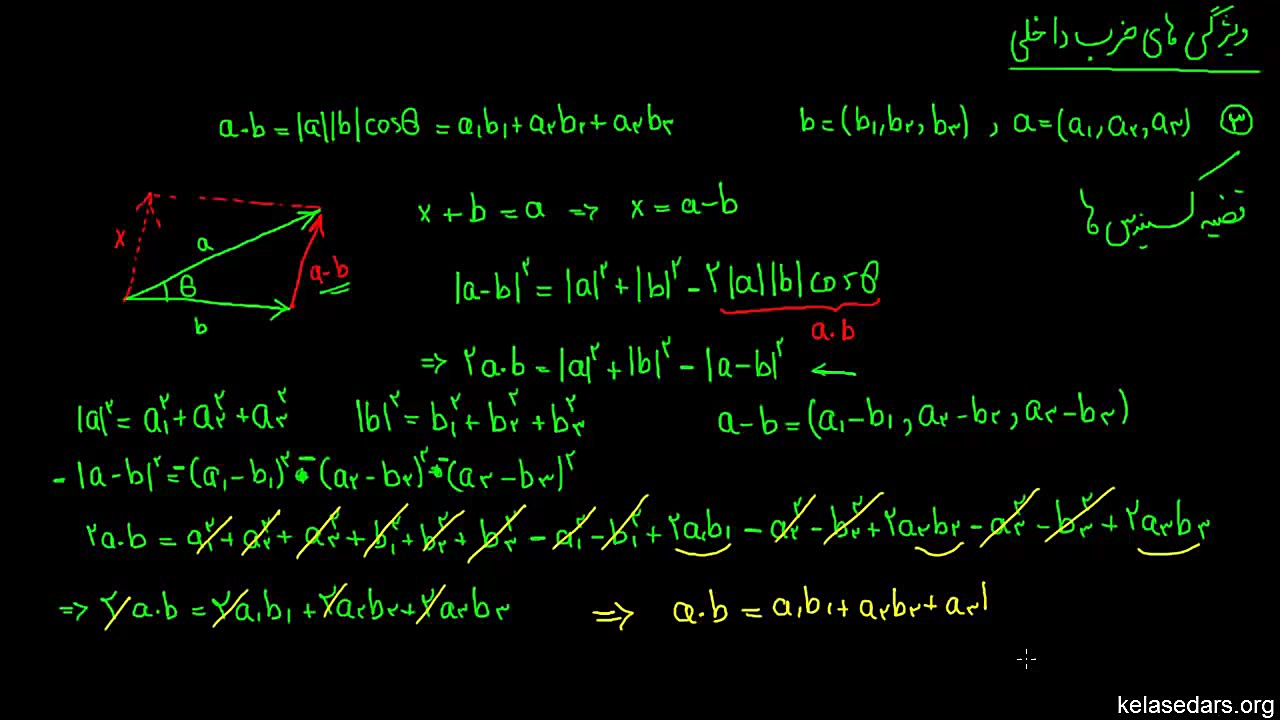 ویژگی های ضرب داخلی
③ a=(a₁,a₂,a₃) , b=(b₁,b₂,b₃)
a·b = |a||b|cosθ = a₁b₁+a₂b₂+a₃b₃
قضیه کسینوس ها
x + b = a ⇒ x = a-b
x
a
θ
b
a-b
|a-b|² = |a|² + |b|² - ۲|a||b|cosθ
a·b
⇒ ۲a·b = |a|² + |b|² - |a-b|² ←
|a|² = a₁² + a₂² + a₃² |b|² = b₁² + b₂² + b₃² a-b = (a₁-b₁, a₂-b₂, a₃-b₃)
-|a-b|² = -(a₁-b₁)² -(a₂-b₂)² -(a₃-b₃)²
۲a·b = a₁² + a₂² + a₃² + b₁² + b₂² + b₃² - a₁² - b₁² + ۲a₁b₁ - a₂² - b₂² + ۲a₂b₂ - a₃² - b₃² + ۲a₃b₃
⇒ ۲a·b = ۲a₁b₁ + ۲a₂b₂ + ۲a₃b₃ ⇒ a·b = a₁b₁ + a₂b₂ + a₃l
kelasedars.org